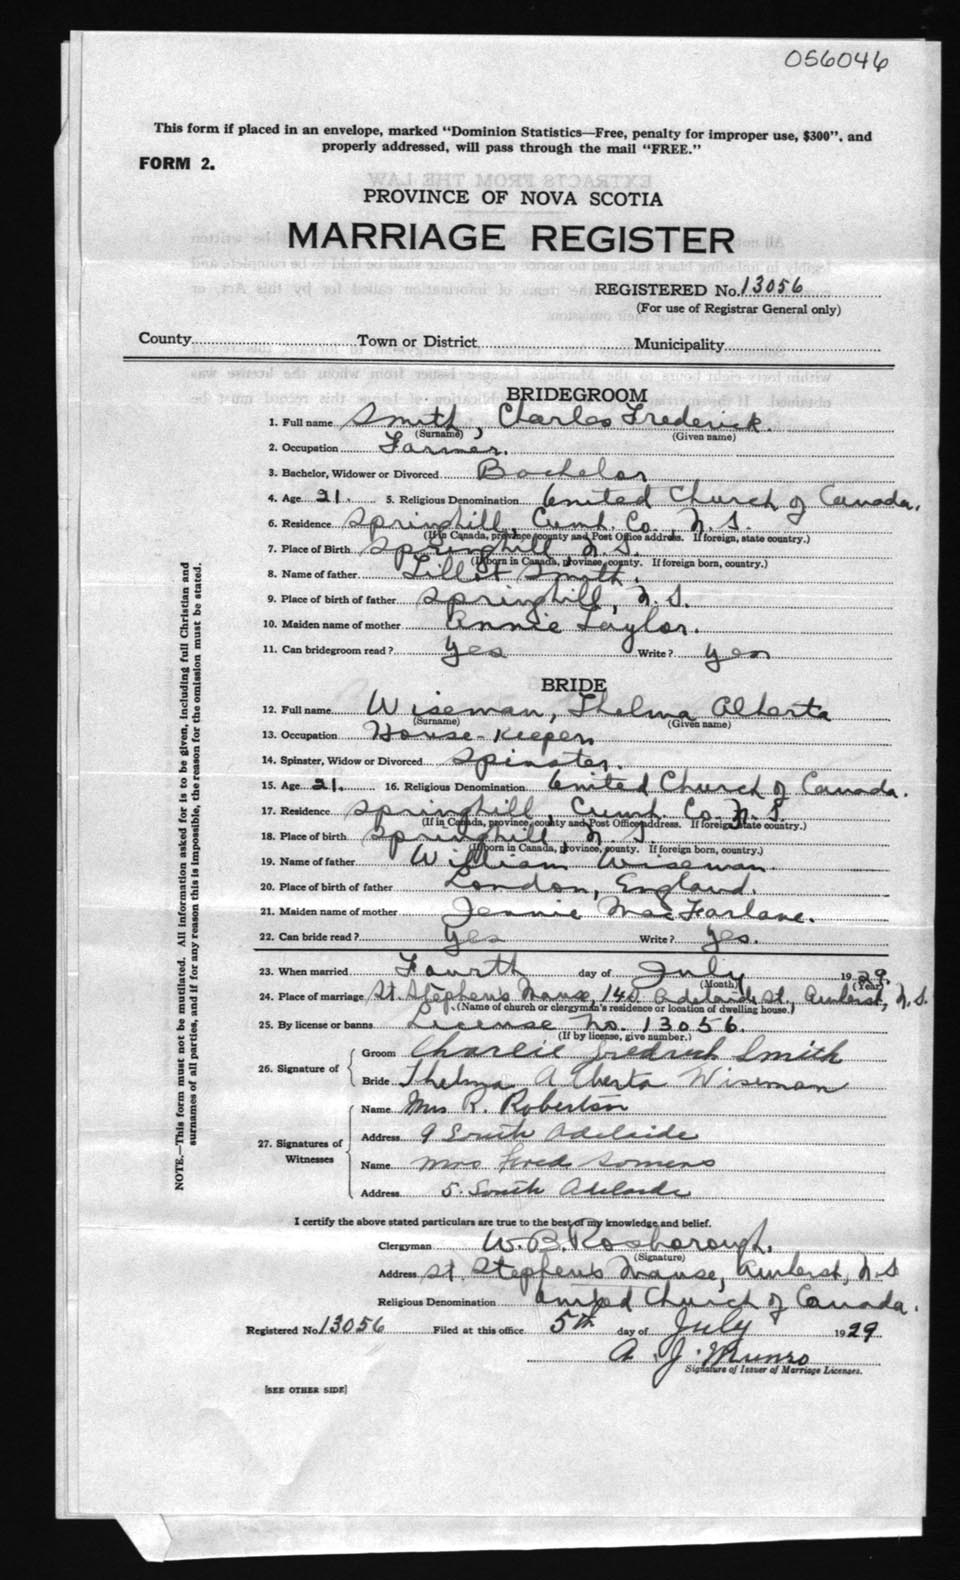 056046
This form if placed in an envelope, marked "Dominion Statistics—Free, penalty for improper use, $300", and
properly addressed, will pass through the mail "FREE."
FORM 2.
PROVINCE OF NOVA SCOTIA
MARRIAGE REGISTER
REGISTERED No. 13056
(For use of Registrar General only)
County Town or District Municipality
BRIDEGROOM
1. Full name Smith, Charles Frederick.
(Surname) (Given name)
2. Occupation Farmer.
3. Bachelor, Widower or Divorced Bachelor
4. Age 21. 5. Religious Denomination United Church of Canada.
6. Residence Springhill, Cumb. Co., N.S.
(If in Canada, province county and Post Office address. If foreign, state country.)
7. Place of Birth Springhill N.S.
(If born in Canada, province, county. If foreign born, country.)
8. Name of father Smith.
9. Place of birth of father Springhill, N.S.
10. Maiden name of mother Annie Taylor.
11. Can bridegroom read? Yes Write? Yes
BRIDE
12. Full name Wiseman, Thelma Alberta
(Surname) (Given name)
13. Occupation House-Keeper
14. Spinster, Widow or Divorced Spinster.
15. Age 21. 16. Religious Denomination United Church of Canada.
17. Residence Springhill, Cumb. Co. N.S.
(If in Canada, province, county and Post Office address. If foreign state country.)
18. Place of birth Springhill N.S.
(If born in Canada, province, county. If foreign born, country.)
19. Name of father William Wiseman
20. Place of birth of father London, England.
21. Maiden name of mother Jennie MacFarlane.
22. Can bride read? Yes Write? Yes.
23. When married Fourth day of July 1929.
(Month) (Year)
24. Place of marriage St. Stephen's Manse, 140 Adelaide St., Amherst, N.S.
(Name of church or clergyman's residence or location of dwelling house.)
25. By license or banns License No. 13056.
(If by license, give number.)
26. Signature of
Groom Charlie Fredrick Smith
Bride Thelma Alberta Wiseman
27. Signatures of Witnesses
Name Mrs R. Robertson
Address 9 South Adelaide
Name Mrs Fred Somers
Address 5. South Adelaide
I certify the above stated particulars are true to the best of my knowledge and belief.
Clergyman W. B. Rosborough.
(Signature)
Address St. Stephen's Manse, Amherst, N.S
Religious Denomination United Church of Canada.
Registered No 13056 Filed at this office 5th day of July 1929
A. J. Munro
Signature of Issuer of Marriage Licenses.
[SEE OTHER SIDE]
NOTE.—This form must not be mutilated. All information asked for is to be given, including full Christian and
surnames of all parties, and if for any reason this is impossible, the reason for the omission must be stated.